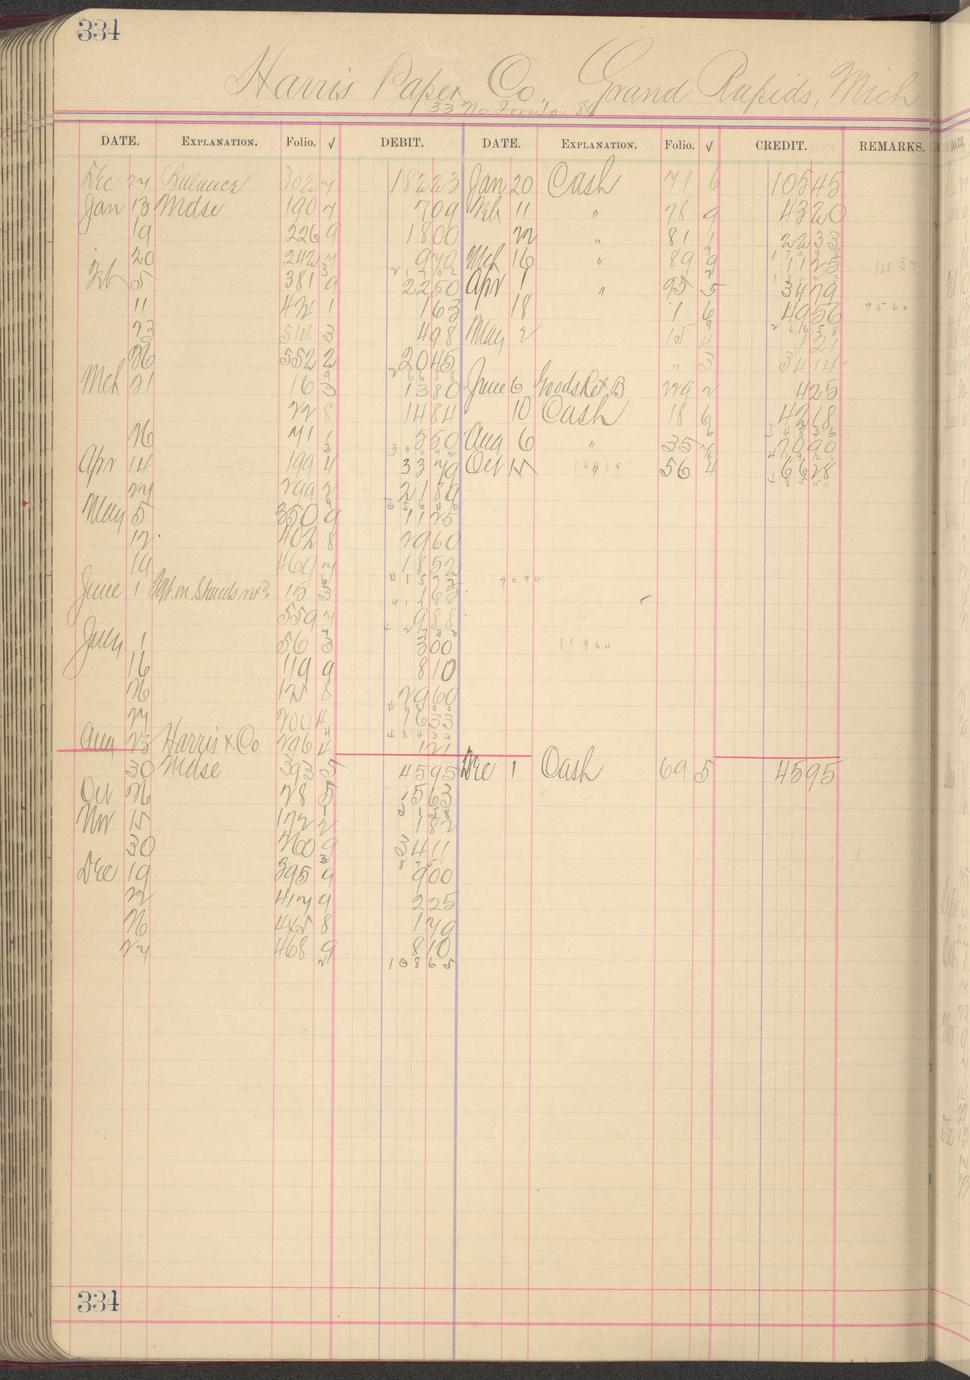 334
Harris Paper Co., Grand Rapids, Mich
33 No. Ionia St
DATE. EXPLANATION. Folio. √ DEBIT. DATE. EXPLANATION. Folio. √ CREDIT. REMARKS.
Dec 27 Balance 302 7 18223 Jan 20 Cash 71 6 10545
Jan 13 Mdse 190 7 709 Feb 11 " 78 9 4320
19 226 9 1800 22 " 81 1 2233
20 242 7 970 Mch 16 " 89 9 1125
Feb 5 381 9 2250 Apr 1 " 95 5 3479
11 42 1 163 18 1 6 4956
23 514 3 498 May 2 15 4 121
26 552 2 2045 " 3 3414
Mch 21 16 3 1380 June 6 Goods Ret B 292 2 425
22 8 1484 10 Cash 18 6 4268
26 71 1 550 Aug 6 " 35 7090
Apr 14 199 4 3379 Oct 15 56 4 6628
27 299 2 2189
May 5 350 9 1125
12 402 8 2960
19 460 7 1852
June 1 15 3 163
559 7 988
July 1 56 3 300
16 119 9 810
26 15 8 2960
27 200 4 1633
Aug 23 Harris & Co 296 4 121
30 Mdse 393 5 4595 Dec 1 Cash 69 5 4595
Oct 26 28 5 1563
Nov 15 172 2 182
30 260 9 3411
Dec 19 395 9 900
22 417 9 225
26 465 8 179
27 468 9 810
10865
334